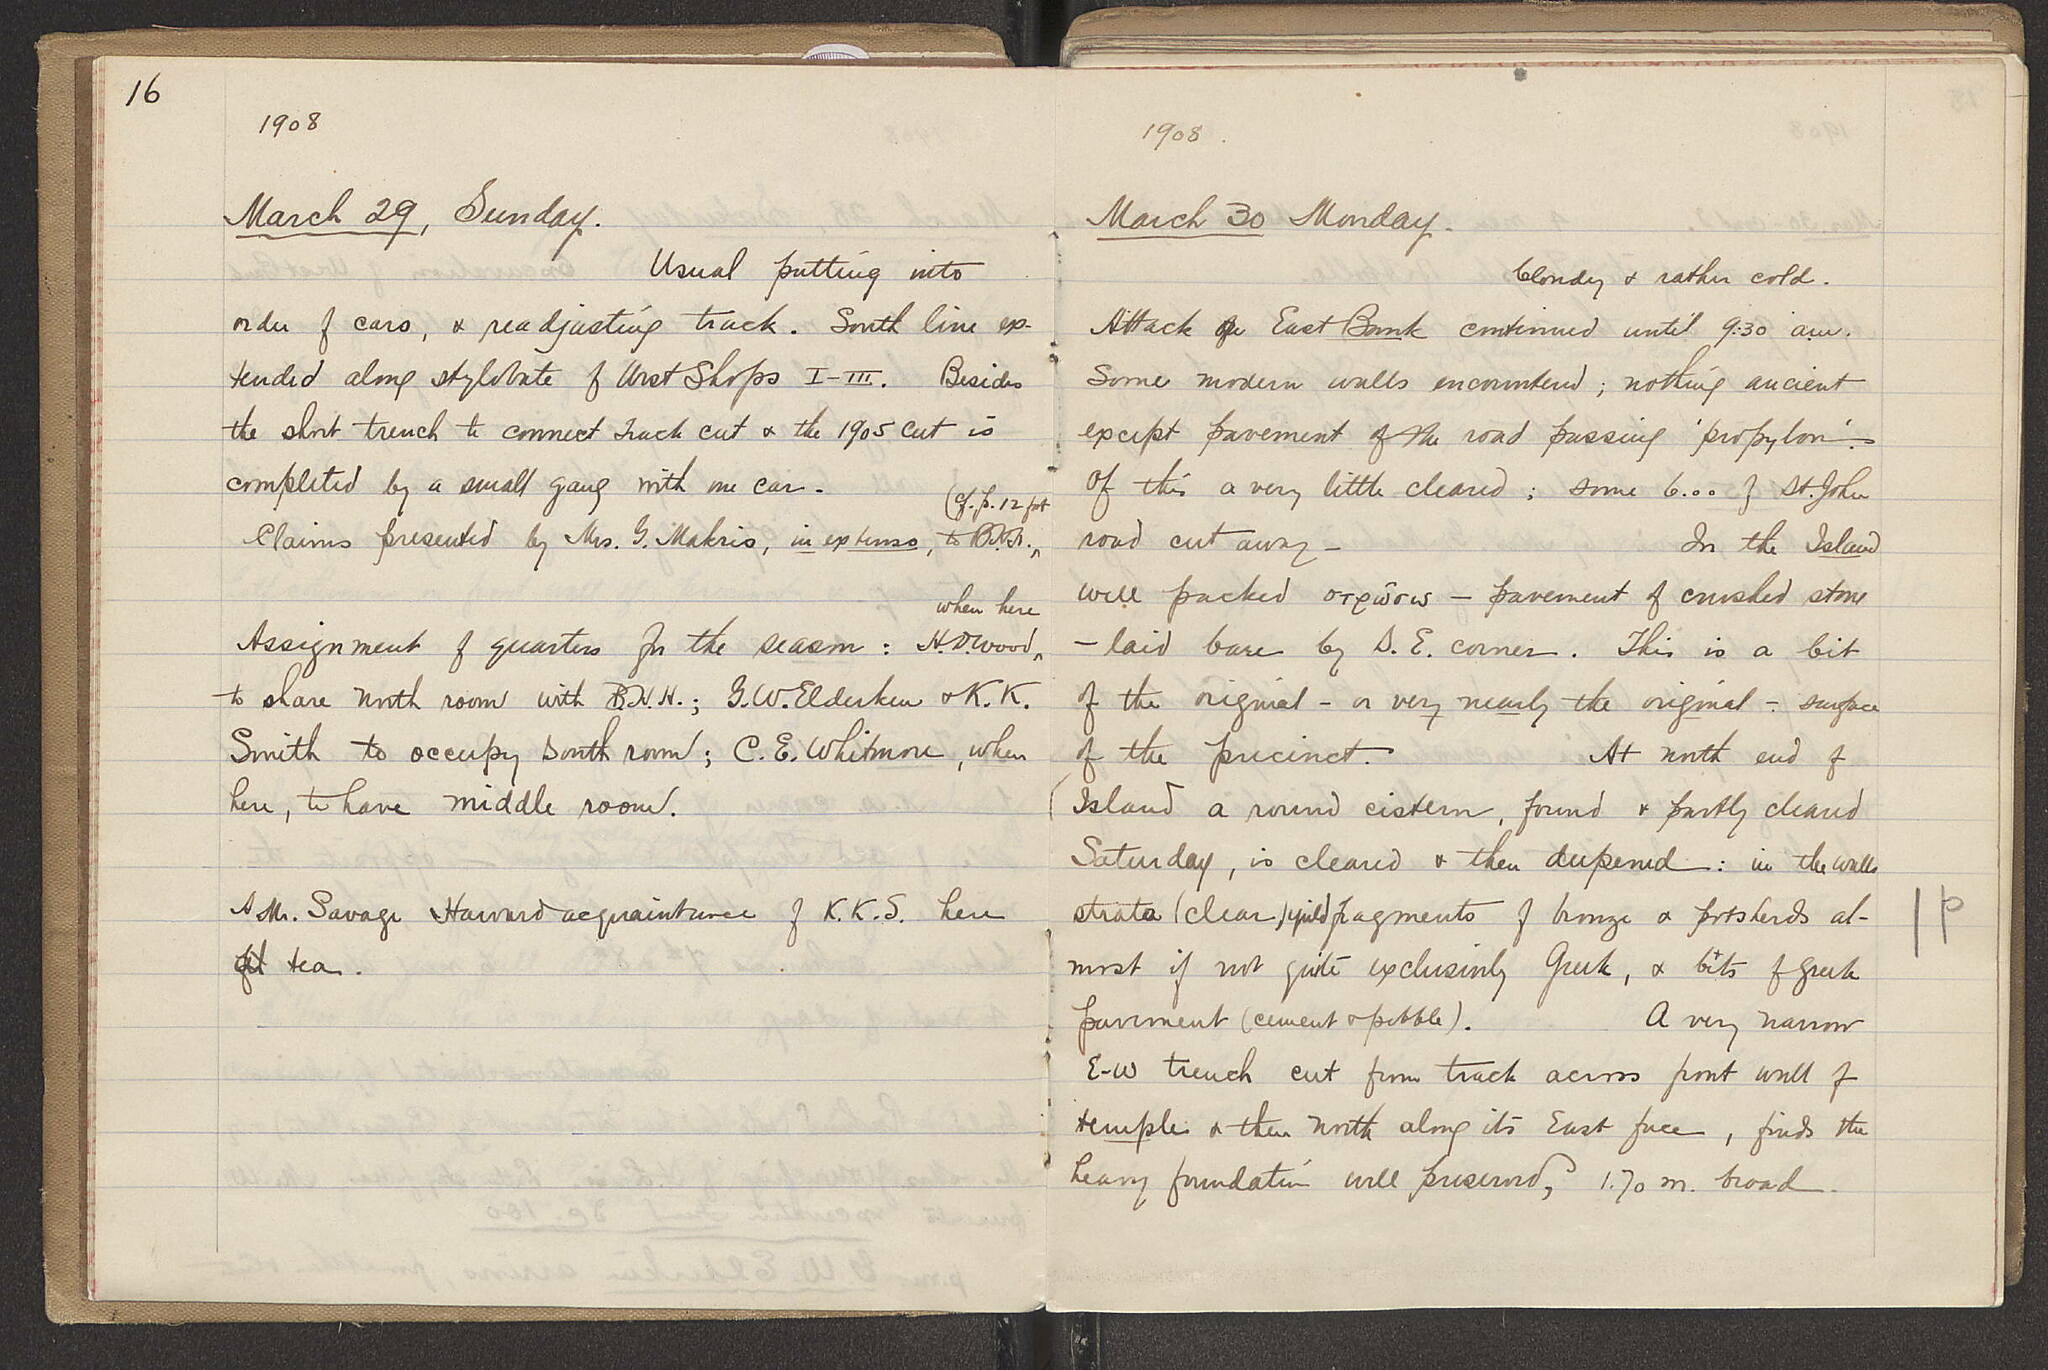 16
1908
March 29, Sunday.
Usual putting into
order of cars, & readjusting track. South line ex-
tended along stylobate of West Shops I-III. Besides
the short trench to connect track cut & the 1905 cut is
completed by a small gang with one car.
(cf. p. 12 foot
Claims presented by Mrs. G. Makris, in extenso, to B.H.H.
when here
Assignment of quarters for the season: H.D. Wood
to share north room with B.H.H.; G.W. Elderkin & K.K.
Smith to occupy south room; C.E. Whitmore, when
here, to have middle room.
A Mr. Savage Harvard acquaintance of K.K.S. here
at tea.
1908.
March 30 Monday.
Cloudy & rather cold.
Attack on East Bank continued until 9:30 a.m.
Some modern walls encountered; nothing ancient
except pavement of the road passing 'propylon'.
Of this a very little cleared; some 6... of St. John
road cut away -
In the Island
well packed στρῶσις - pavement of crushed stone
- laid bare by S. E. corner. This is a bit
of the original - or very nearly the original - surface
of the precinct.
At north end of
Island a round cistern, found & partly cleared
Saturday, is cleared & then deepened: in the walls
strata (clear) yield fragments of bronze & potsherds al-
most if not quite exclusively Greek, & bits of Greek
pavement (cement & pebble).
A very narrow
E-W trench cut from track across front wall of
temple & then north along its East face, finds the
heavy foundation well preserved, 1.70 m. broad.